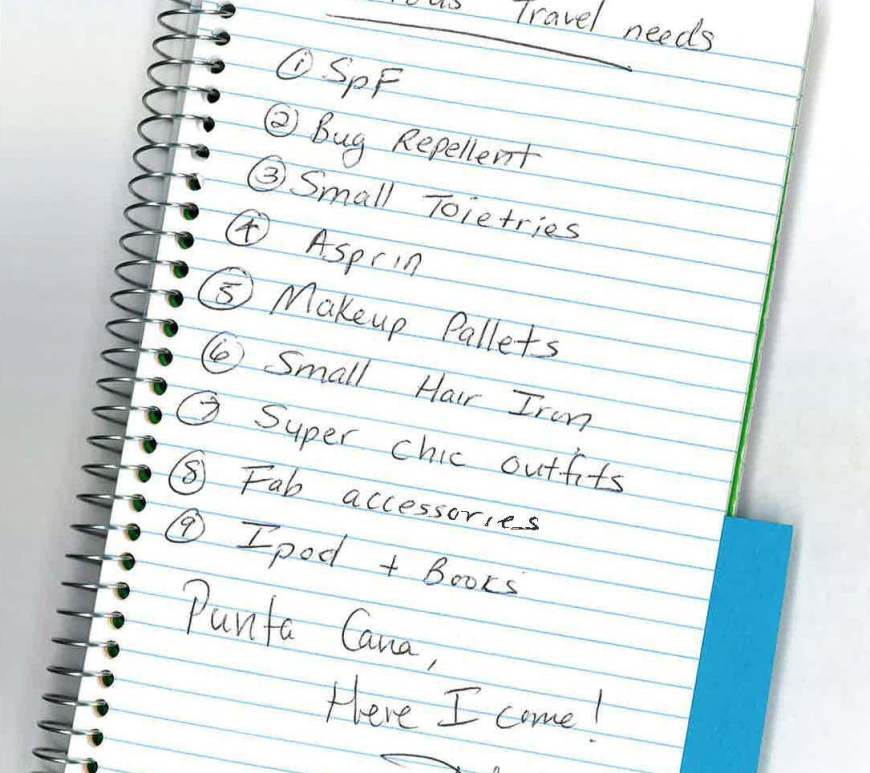 Travel needs
① SpF
② Bug Repellent
③ Small Toietries
④ Asprin
⑤ Makeup Pallets
⑥ Small Hair Iron
⑦ Super chic outfits
⑧ Fab accessories
⑨ Ipod + Books
Punta Cana,
Here I come!